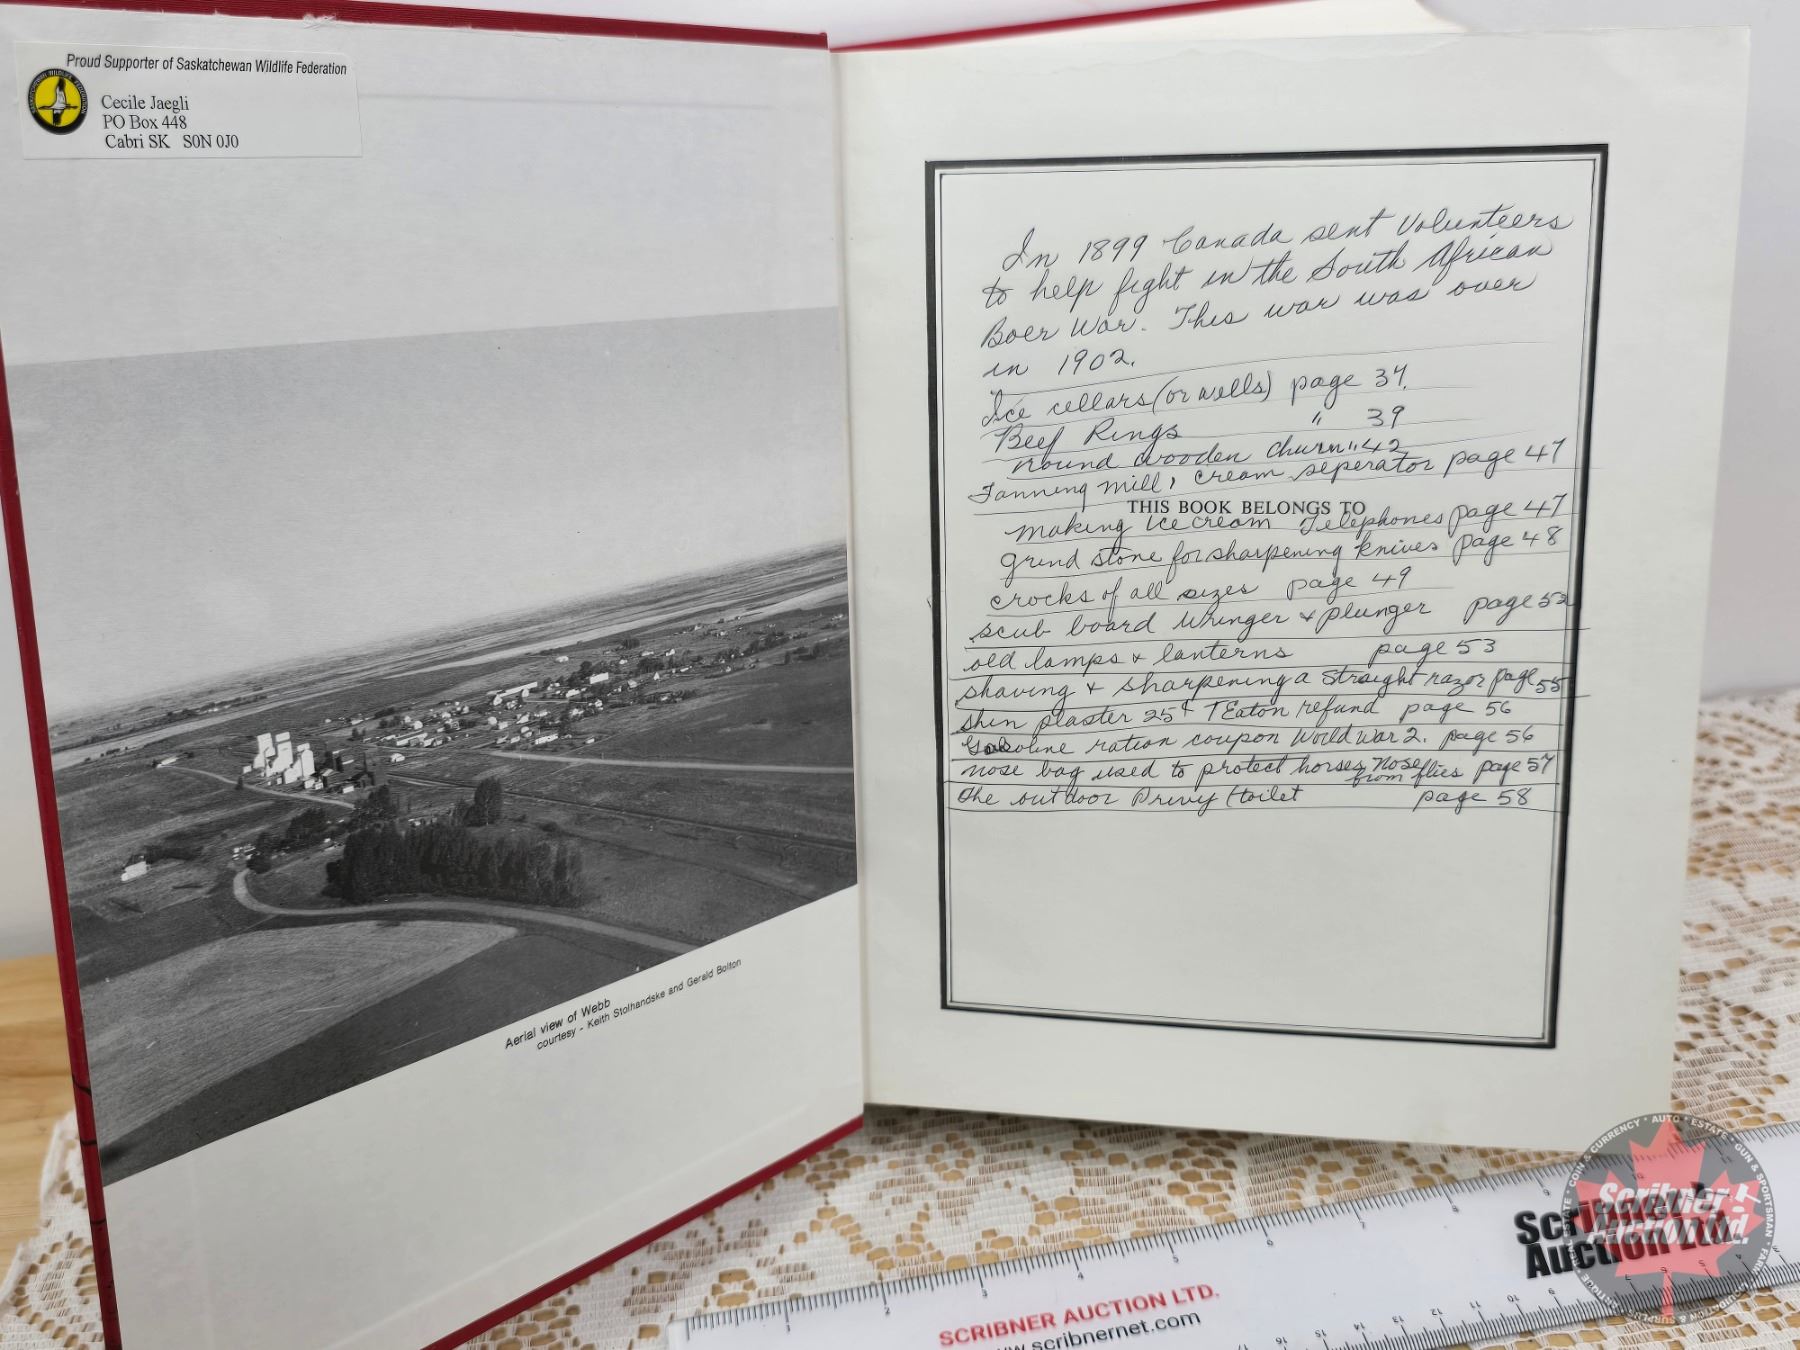 Proud Supporter of Saskatchewan Wildlife Federation
Cecile Jaegli
PO Box 448
Cabri SK S0N 0J0
Aerial view of Webb
courtesy - Keith Stolhandske and Gerald Bolton
In 1899 Canada sent Volunteers
to help fight in the South African
Boer War. This war was over
in 1902.
Ice cellars (or wells) page 34.
Beef Rings " 39
round wooden churn " 42
Fanning mill, cream seperator page 47
THIS BOOK BELONGS TO
making ice cream Telephones page 47
grind stone for sharpening knives page 48
crocks of all sizes page 49
scub board wringer & plunger page 52
old lamps & lanterns page 53
shaving & sharpening a straight razor page 55
shin plaster 25¢ T Eaton refund page 56
Gasoline ration coupon World War 2. page 56
nose bag used to protect horses nose from flies page 57
The outdoor Privy (toilet page 58
SCRIBNER AUCTION LTD.
www.scribnernet.com
Scribner
Auction Ltd.
Scribner
Auction Ltd.